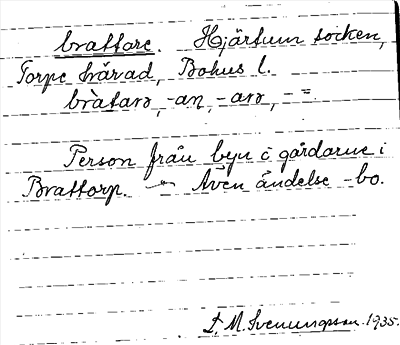 brattare. Hjärtum socken,
Torpe härad, Bohus l.
bràtarə, -an, -arə, - =
Person från byn o gårdarne i
Brattorp. — Även ändelse -bo.
M. Svenungsson 1935.